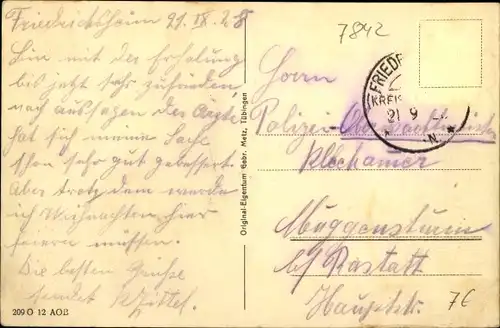 Friedrichsheim 21. IX. 28
Bin mit der Erholung
bis jetzt sehr zufrieden
nach aussagen der Ärzte
hat sich meine Sache
schon sehr gut gebessert.
Aber trotz dem werde
ich Weihnachten hier
feiern müssen.
Die besten Grüße
sendet
209 O 12 AOB
Original-Eigentum Gebr. Metz, Tübingen
7842
FRIED
KREIS
21 9
N.
Herrn
Polizei-Oberwachtmeister
Muggensturm
b/ Rastatt
Hauptstr.
7€